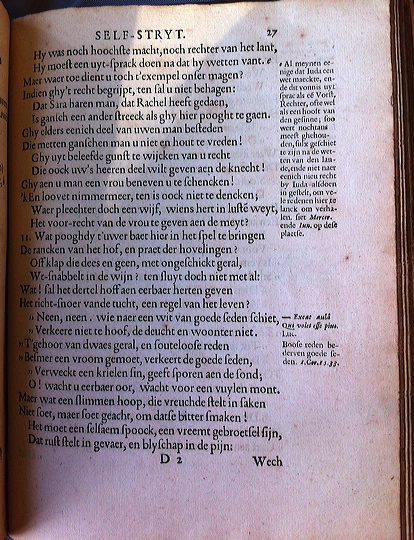 SELF-STRYT. 27
Hy was noch hoochste macht, noch rechter van het lant,
Hy moest een uyt-sprack doen na dat hy wetten vant. e
Maer waer toe dient u toch t'exempel onser magen?
Indien ghy't recht begrijpt, ten sal u niet behagen:
Dat Sara haren man, dat Rachel heeft gedaen,
Is gansch een ander streeck als ghy hier pooght te gaen.
Ghy elders eenich deel van uwen man besteden
Die metten ganschen man u niet en hout te vreden!
Ghy uyt beleefde gunst te wijcken van u recht
Die oock uw's heeren deel wilt geven aen de knecht!
Ghy aen u man een vrou beneven u te schencken!
'k En loovet nimmermeer, ten is oock niet te dencken;
Waer pleechter doch een wijf, wiens hert in lusté weyt,
Het voor-recht van de vrou te geven aen de meyt?
11. Wat pooghdy t'uwer baet hier in het spel te bringen
De rancken van het hof, en praet der hovelingen?
Off klap die dees en geen, met ongeschickt geral,
Wt-snabbelt in de wijn? ten sluyt doch niet met al:
Wat! sal het dertel hoff aen eerbaer herten geven
Het richt-snoer vande tucht, een regel van het leven?
„ Neen, neen. wie naer een wit van goede seden schiet,
„ Verkeere niet te hoof, de deucht en woonter niet.
„ T'gehoor van dwaes geral, en souteloose reden
„ Belmer een vroom gemoet, verkeert de goede seden,
„ Verweckt een krielen sin, geeft sporen aen de sond;
„ O! wacht u eerbaer oor, wacht voor een vuylen mont.
Maer wat een slimmen hoop, die vreuchde stelt in saken
Niet soet, maer soet geacht, om datse bitter smaken!
Het moet een selsaem spoock, een vreemt gebroetsel sijn,
Dat rust stelt in gevaer, en blyschap in de pijn:
D 2 Wech
e Al meynen ee-
nige dat Iuda een
wet maeckte, en-
de dit vonnis uyt
sprac als de Vorst,
Rechter, ofte wel
als een hooft van
den gesinne; soo
wert nochtans
meest gehou-
den, sulx geschiet
te zijn na de wet-
ten van den lan-
de, ende niet naer
eenich nieu recht
by Iuda alsdoen
in gestelt, om ve-
le redenen hier te
lanck om verha-
len. siet Mercer.
ende Iun. op dese
plaetse.
— Exeat aulâ
Qui volet esse pius.
Luc.
Boose reden be-
derven goede se-
den. 1. Cor. 15. 33.